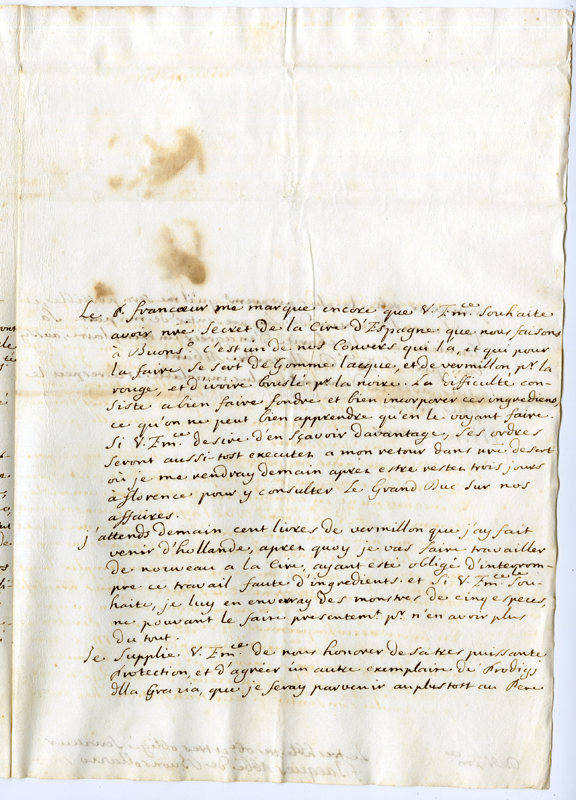 Le P. francœur me marque encore que V. Em.ce souhaite
avoir nrẽ secret de la Cire d'Espagne que nous faisons
à Buons.o C'est un de nos Convers qui l'a, et qui pour
la faire, se sert de Gomme lacque, et de vermillon pr. la
rouge, et d'ivoire bruslé pr. la noire. La difficulte con-
siste a bien faire fondre et bien incorporer ces ingrediens
ce qu'on ne peut bien apprendre qu'en le voyant faire.
Si V. Em.ce desire d'en sçavoir davantage, ses ordres
seront aussi-tost executez a mon retour dans nrẽ desert
où je me rendray demain aprez estre restez trois jours
à florence pour y consulter Le Grand Duc sur nos
affaires.
j'attends demain cent livres de vermillon que j'ay fait
venir d'hollande, aprez quoy je vas faire travailler
de nouveau a la Cire, ayant esté obligé d'interrom-
pre ce travail faute d'ingredients. et Si V. Em.ce Sou-
haite, je luy en enverray des monstres de cinq especes,
ne pouvant le faire presentemt. pr. n'en avoir plus
du tout.
Je Supplie V. Em.ce de nous honorer de sa tres puissante
Protection, et d'agréer un autre exemplaire de Prodigi
dlla Grazia, que je feray parvenir au plus tost au Pere